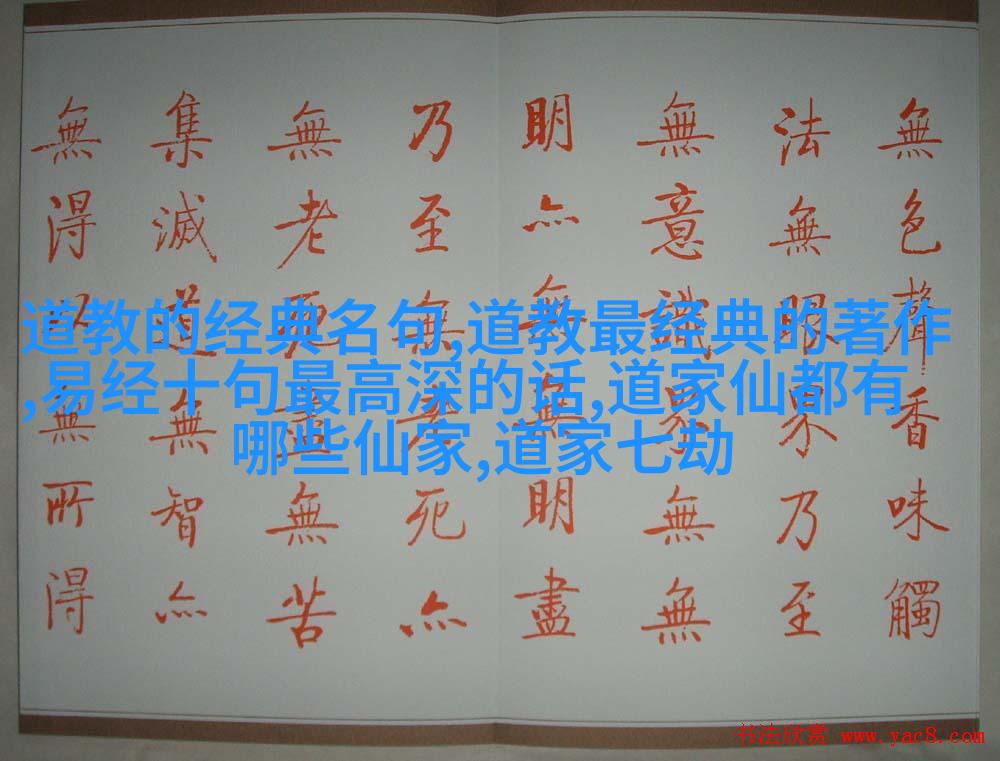 無色聲香味觸
法無眼界乃至
無意識界無無
明亦無無明盡
乃至無老死亦
無老死盡無苦
集滅道無智亦
無得以無所得
道教的经典名句,道教最经典的著作
,易经十句最高深的话,道家仙都有
哪些仙家,道家七劫
书法欣赏 www.yac8.com